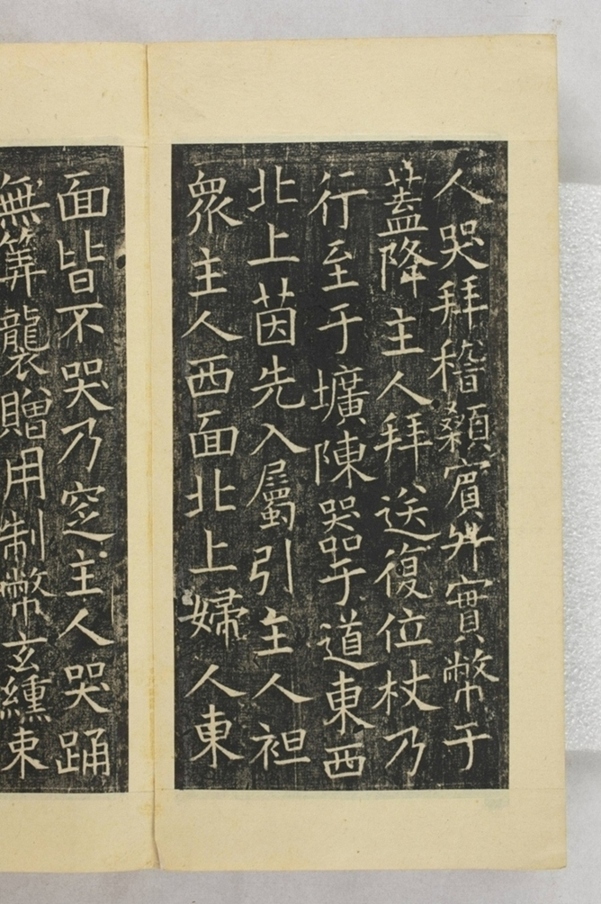 人哭拜稽顙賓升實幣于
蓋降主人拜送復位杖乃
行至于壙陳器于道東西
北上茵先入屬引主人袒
眾主人西面北上婦人東
面皆不哭乃窆主人哭踊
無筭襲贈用制幣玄纁束